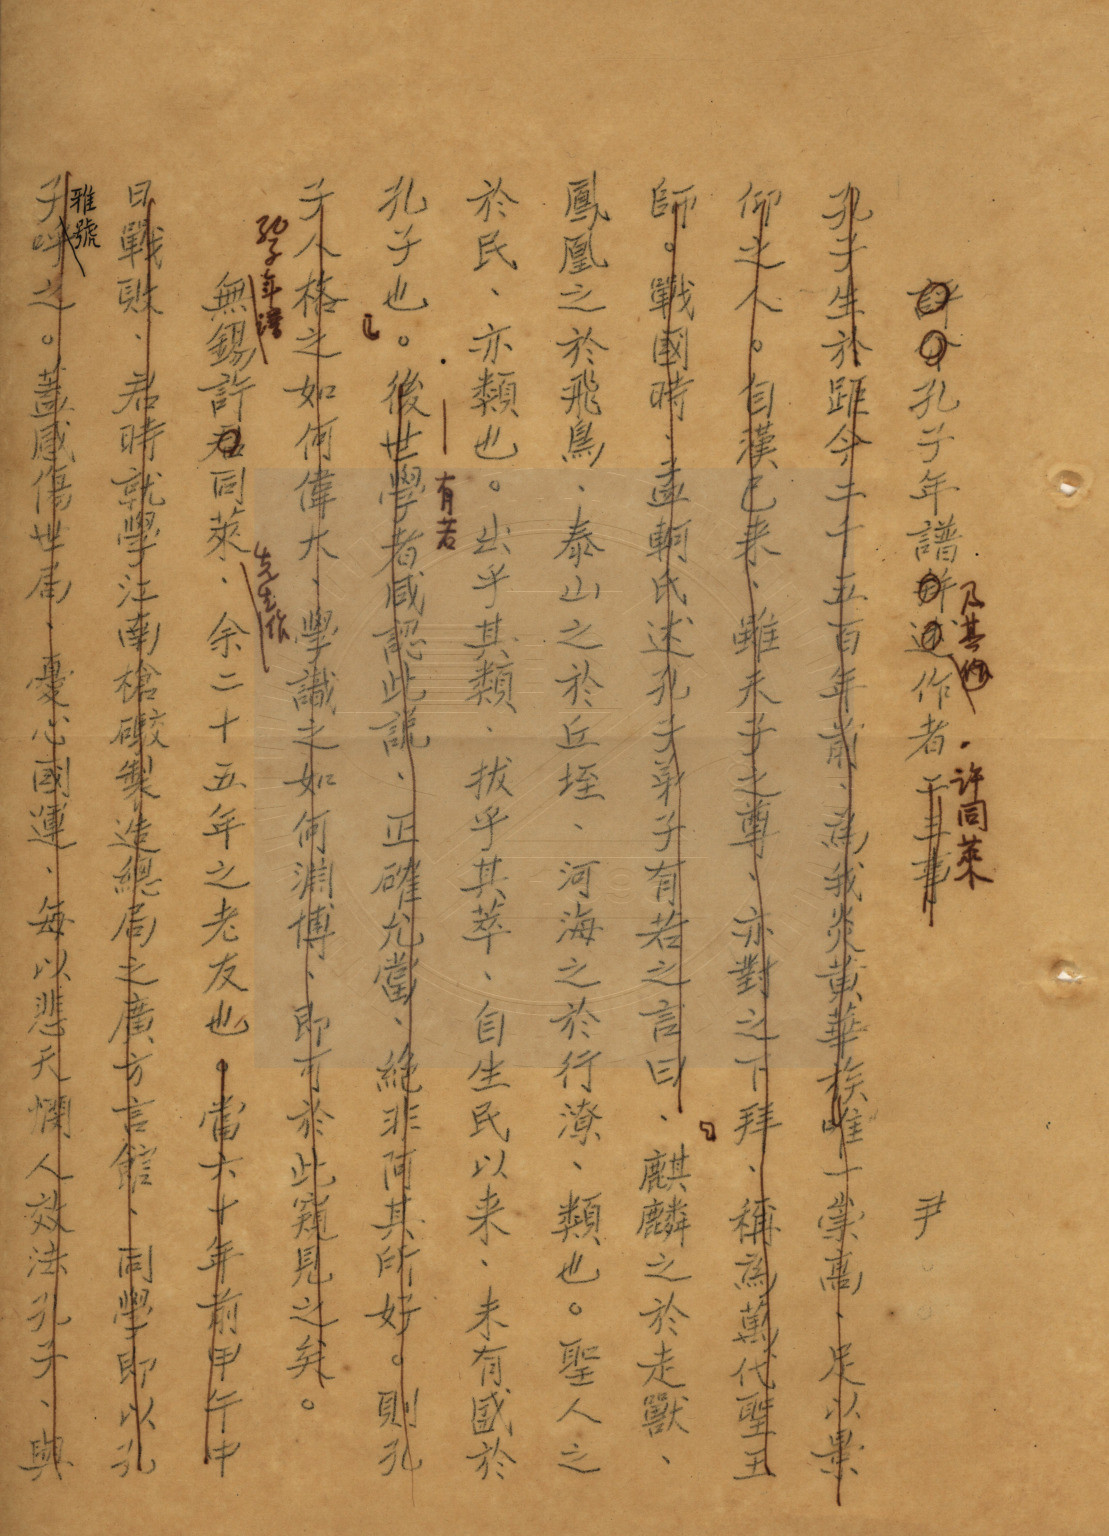 評介孔子年譜並述作者千事 尹
及其作
許同萊
孔子生於距今二千五百年前、為我炎黃華族唯一崇高、足以景
仰之人。自漢已來、雖天子之尊、亦對之下拜、稱為萬代聖王
師。戰國時、孟軻氏述孔子弟子有若之言曰、麒麟之於走獸、
鳳凰之於飛鳥、泰山之於丘垤、河海之於行潦、類也。聖人之
於民、亦類也。出乎其類、拔乎其萃、自生民以來、未有盛於
有若
孔子也。後世學者咸認此說、正確允當、絕非阿其所好。則孔
子人格之如何偉大、學識之如何淵博、即可於此窺見之矣。
孔子年譜
先生作
無錫許君同萊、余二十五年之老友也。當六十年前甲午中
日戰敗、君時就學江南槍礮製造總局之廣方言館、同學即以孔
雅號
子呼之。蓋感傷世局、憂心國運、每以悲天憫人效法孔子、與